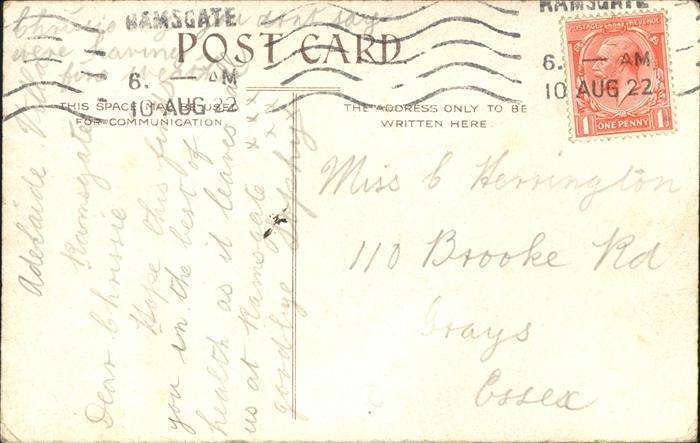 RAMSGATE
6. — AM
10 AUG 22
RAMSGATE
6. — AM
10 AUG 22
POSTAGE & REVENUE
1 ONE PENNY 1
POST CARD
THIS SPACE MAY BE USED
FOR COMMUNICATION.
THE ADDRESS ONLY TO BE
WRITTEN HERE.
you dont say
were having
fine weather
Adelaide
Ramsgate
Dear Chrissie
Hope this finds
you in the best of
health as it leaves
us at Ramsgate x x x
goodbye
Miss C Herrington
110 Brooke Rd
Grays
Essex